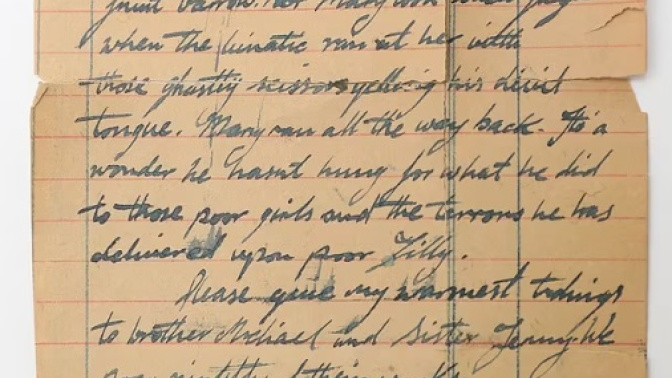 fruit barrow. her Mary took
when the lunatic ran at her with
those ghastly scissors yelling his devil
tongue. Mary ran all the way back. It's a
wonder he hasn't hung for what he did
to those poor girls and the terrors he has
delivered upon poor Lilly.
Please give my warmest tidings
to brother Michael and Sister Jenny. We